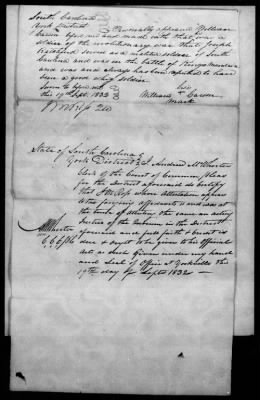 South Carolina
York District Personally appeared William
Carson before me and made oath that was a
soldier of the revolutionary war that Joseph
served as a militia soldier of South
Carolina and was in the battle of Kings mountain
and was and always has been reputed to have
been a good whig soldier
Sworn to before me his
this 19th Sept 1832 William + Carson
mark
State of South Carolina
York District I Andrew McWhorter
Clerk of the Court of Common pleas
for the District aforesaid do certify
that Ross whose attestation appears
to the foregoing affidavits is and was at
the time of attesting the same an acting
Justice of the Quorum in the District
aforesaid and full faith & credit is
due & ought to be given to his official
acts as such Given under my hand
and Seal of Office at Yorkville this
19th day of Septr 1832